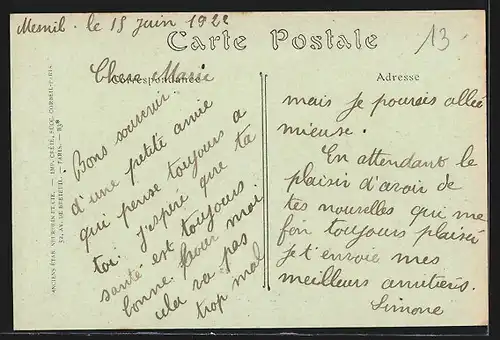 Mesnil. le 15 juin 1922
Carte Postale
13
Correspondance
Adresse
Chere Marie
Bons souvenir
d'une petite amie
qui pense toujours a
toi. j'espère que ta
santé est toujours
bonne. Pour moi
cela va pas
trop mal
mais je pourais allée
mieuse.
En attendant le
plaisir d'avoir de
tes nouvelles qui me
fon toujours plaisir
je t'envoie mes
meilleurs amitiéris.
Simone
ANCIENS ÉTAB. NEURDEIN ET CIE. — IMP. CRÉTÉ, SUCC. CORBEIL-PARIS
52, AV. DE BRETEUIL. — PARIS. —